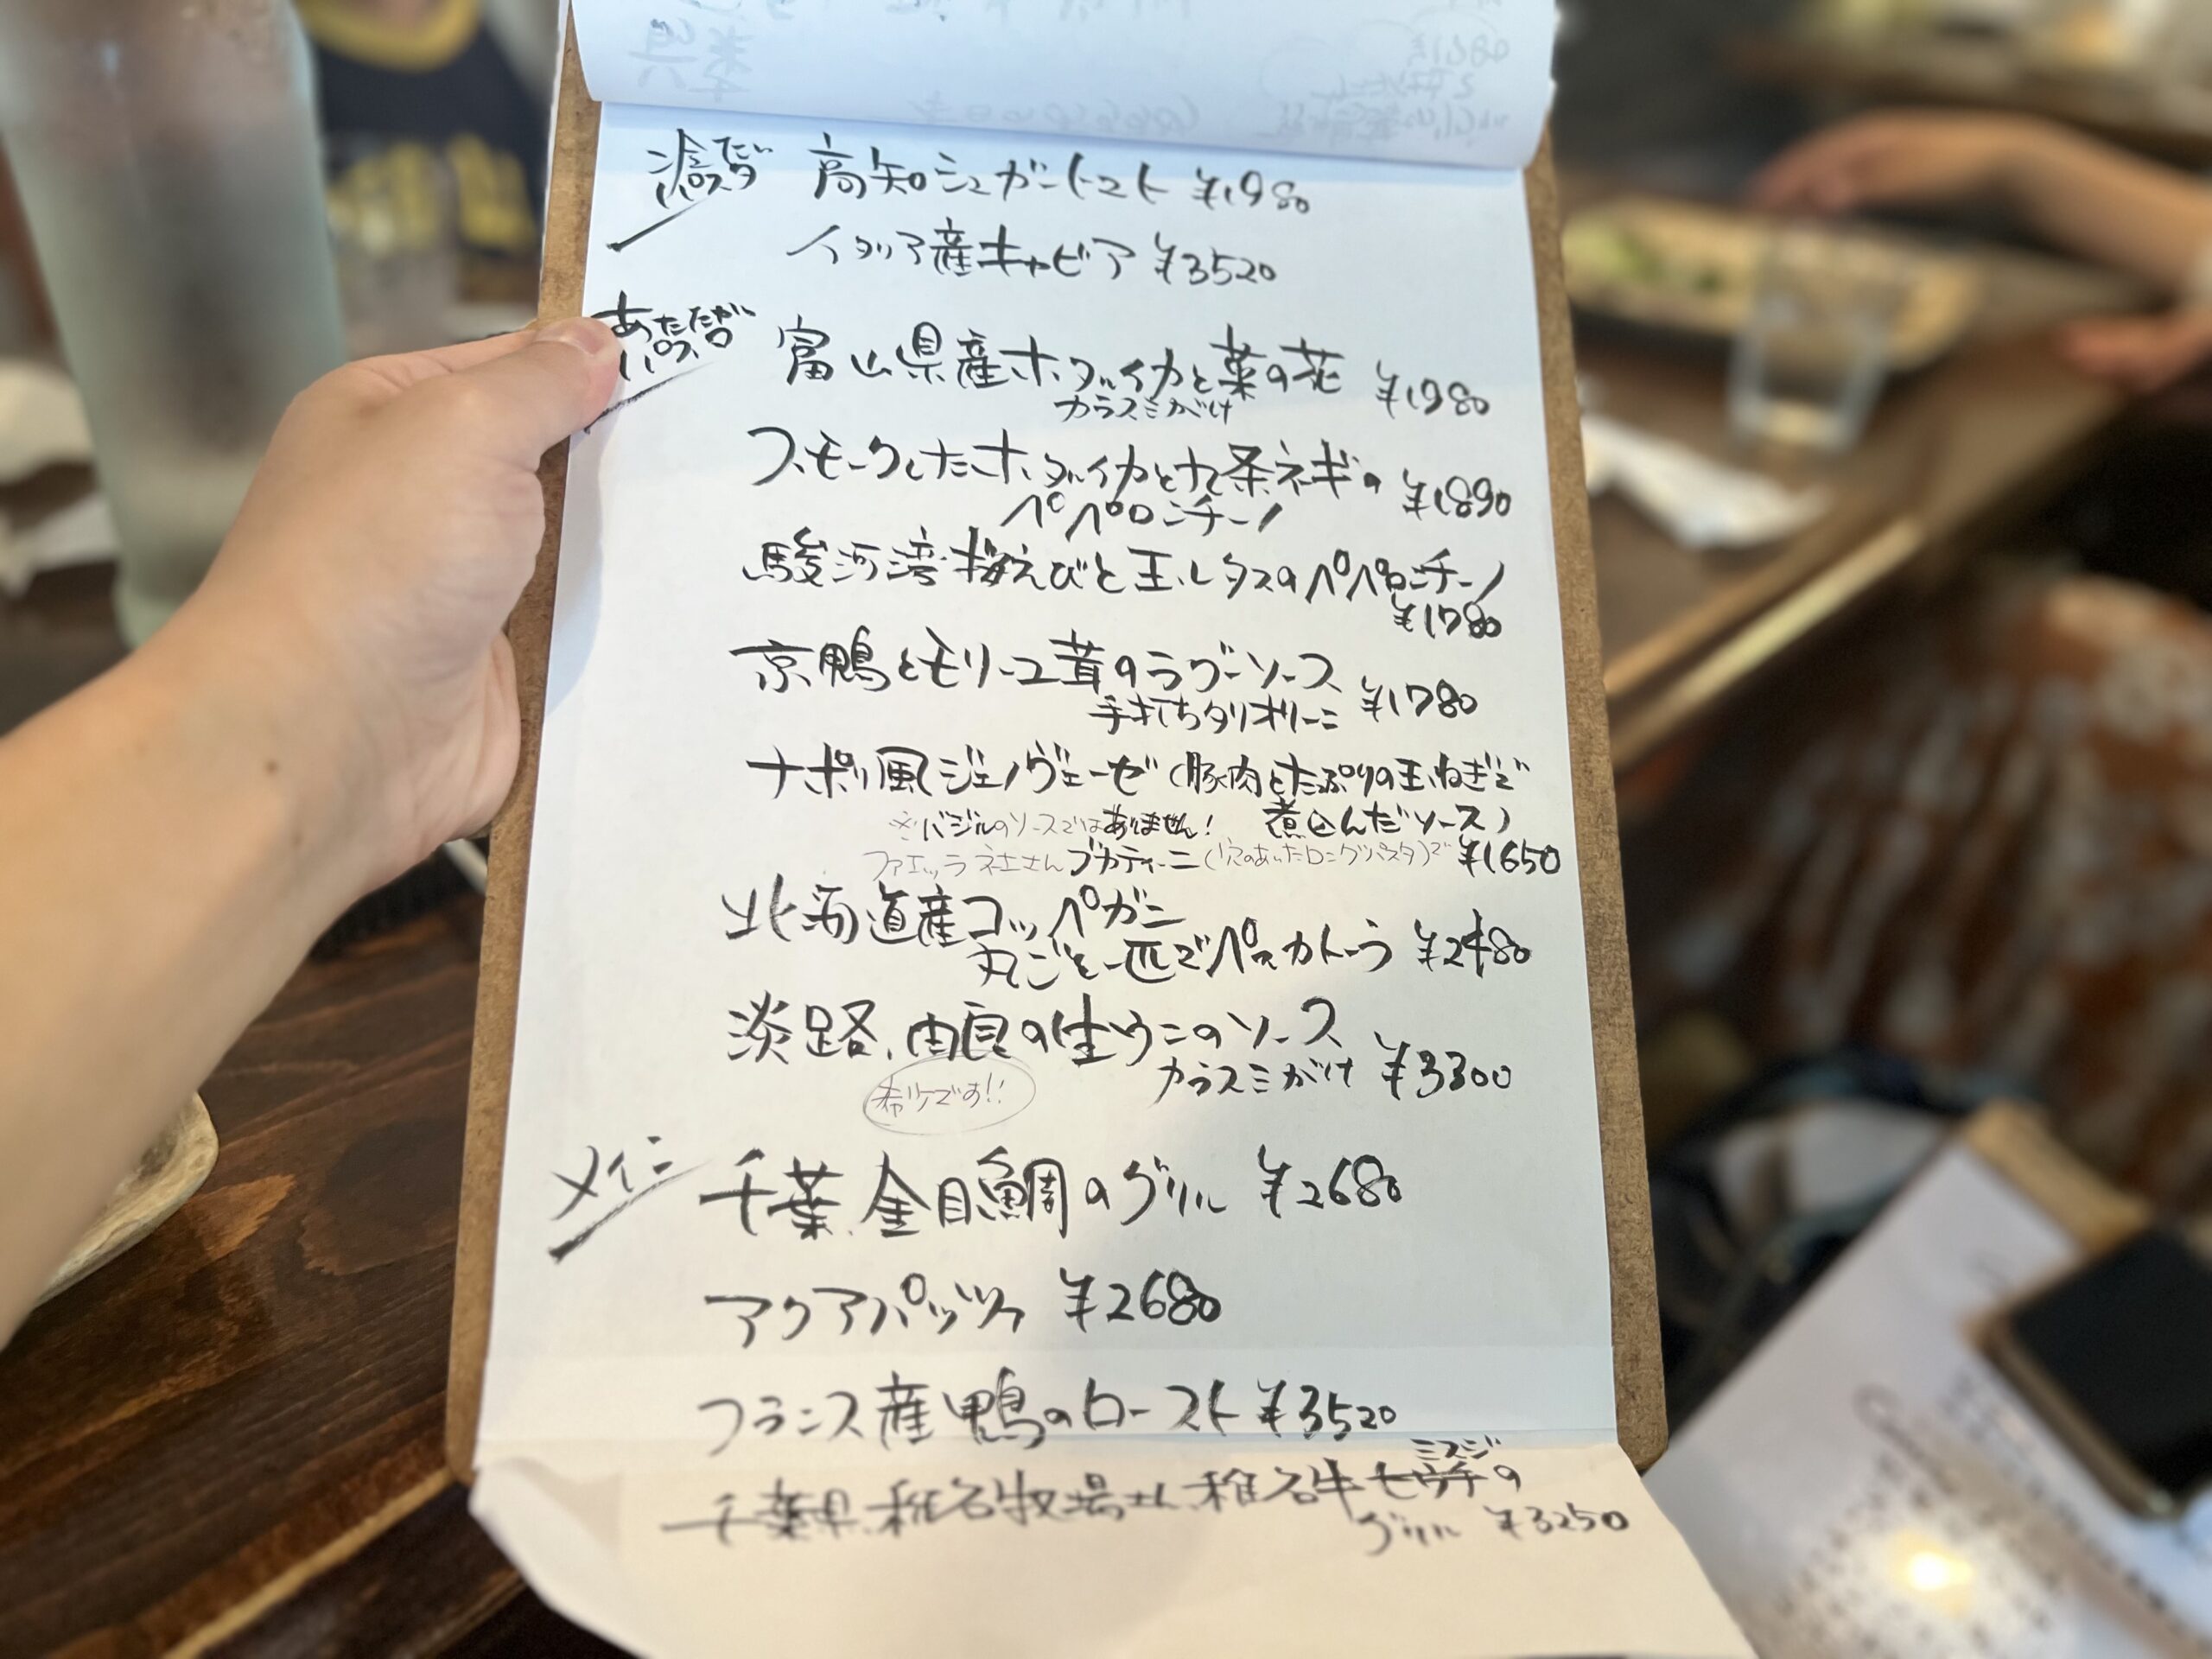 冷たい
パスタ
高知シュガートマト ¥1980
イタリア産キャビア ¥3520
あたたかい
パスタ
富山県産ホタルイカと菜の花 ¥1980
カラスミがけ
スモークしたホタルイカと九条ネギの ¥1890
ペペロンチーノ
駿河湾桜えびと玉レタスのペペロンチーノ
¥1780
京鴨とモリーユ茸のラグーソース ¥1780
手打ちタリオリーニ
ナポリ風ジェノヴェーゼ(豚肉とたっぷりの玉ねぎで
煮込んだソース)
※バジルのソースではありません!
ファエッラ社さんブカティーニ(穴のあいたロングパスタ)で ¥1650
北海道産コッペガニ
丸ごと一匹でペスカトーラ ¥2480
淡路、由良の生ウニのソース
カラスミがけ ¥3300
希少です!!
メイン
千葉、金目鯛のグリル ¥2680
アクアパッツァ ¥2680
フランス産鴨のロースト ¥3520
ミスジ
千葉県、椎名牧場さん、椎名牛の
グリル ¥3250